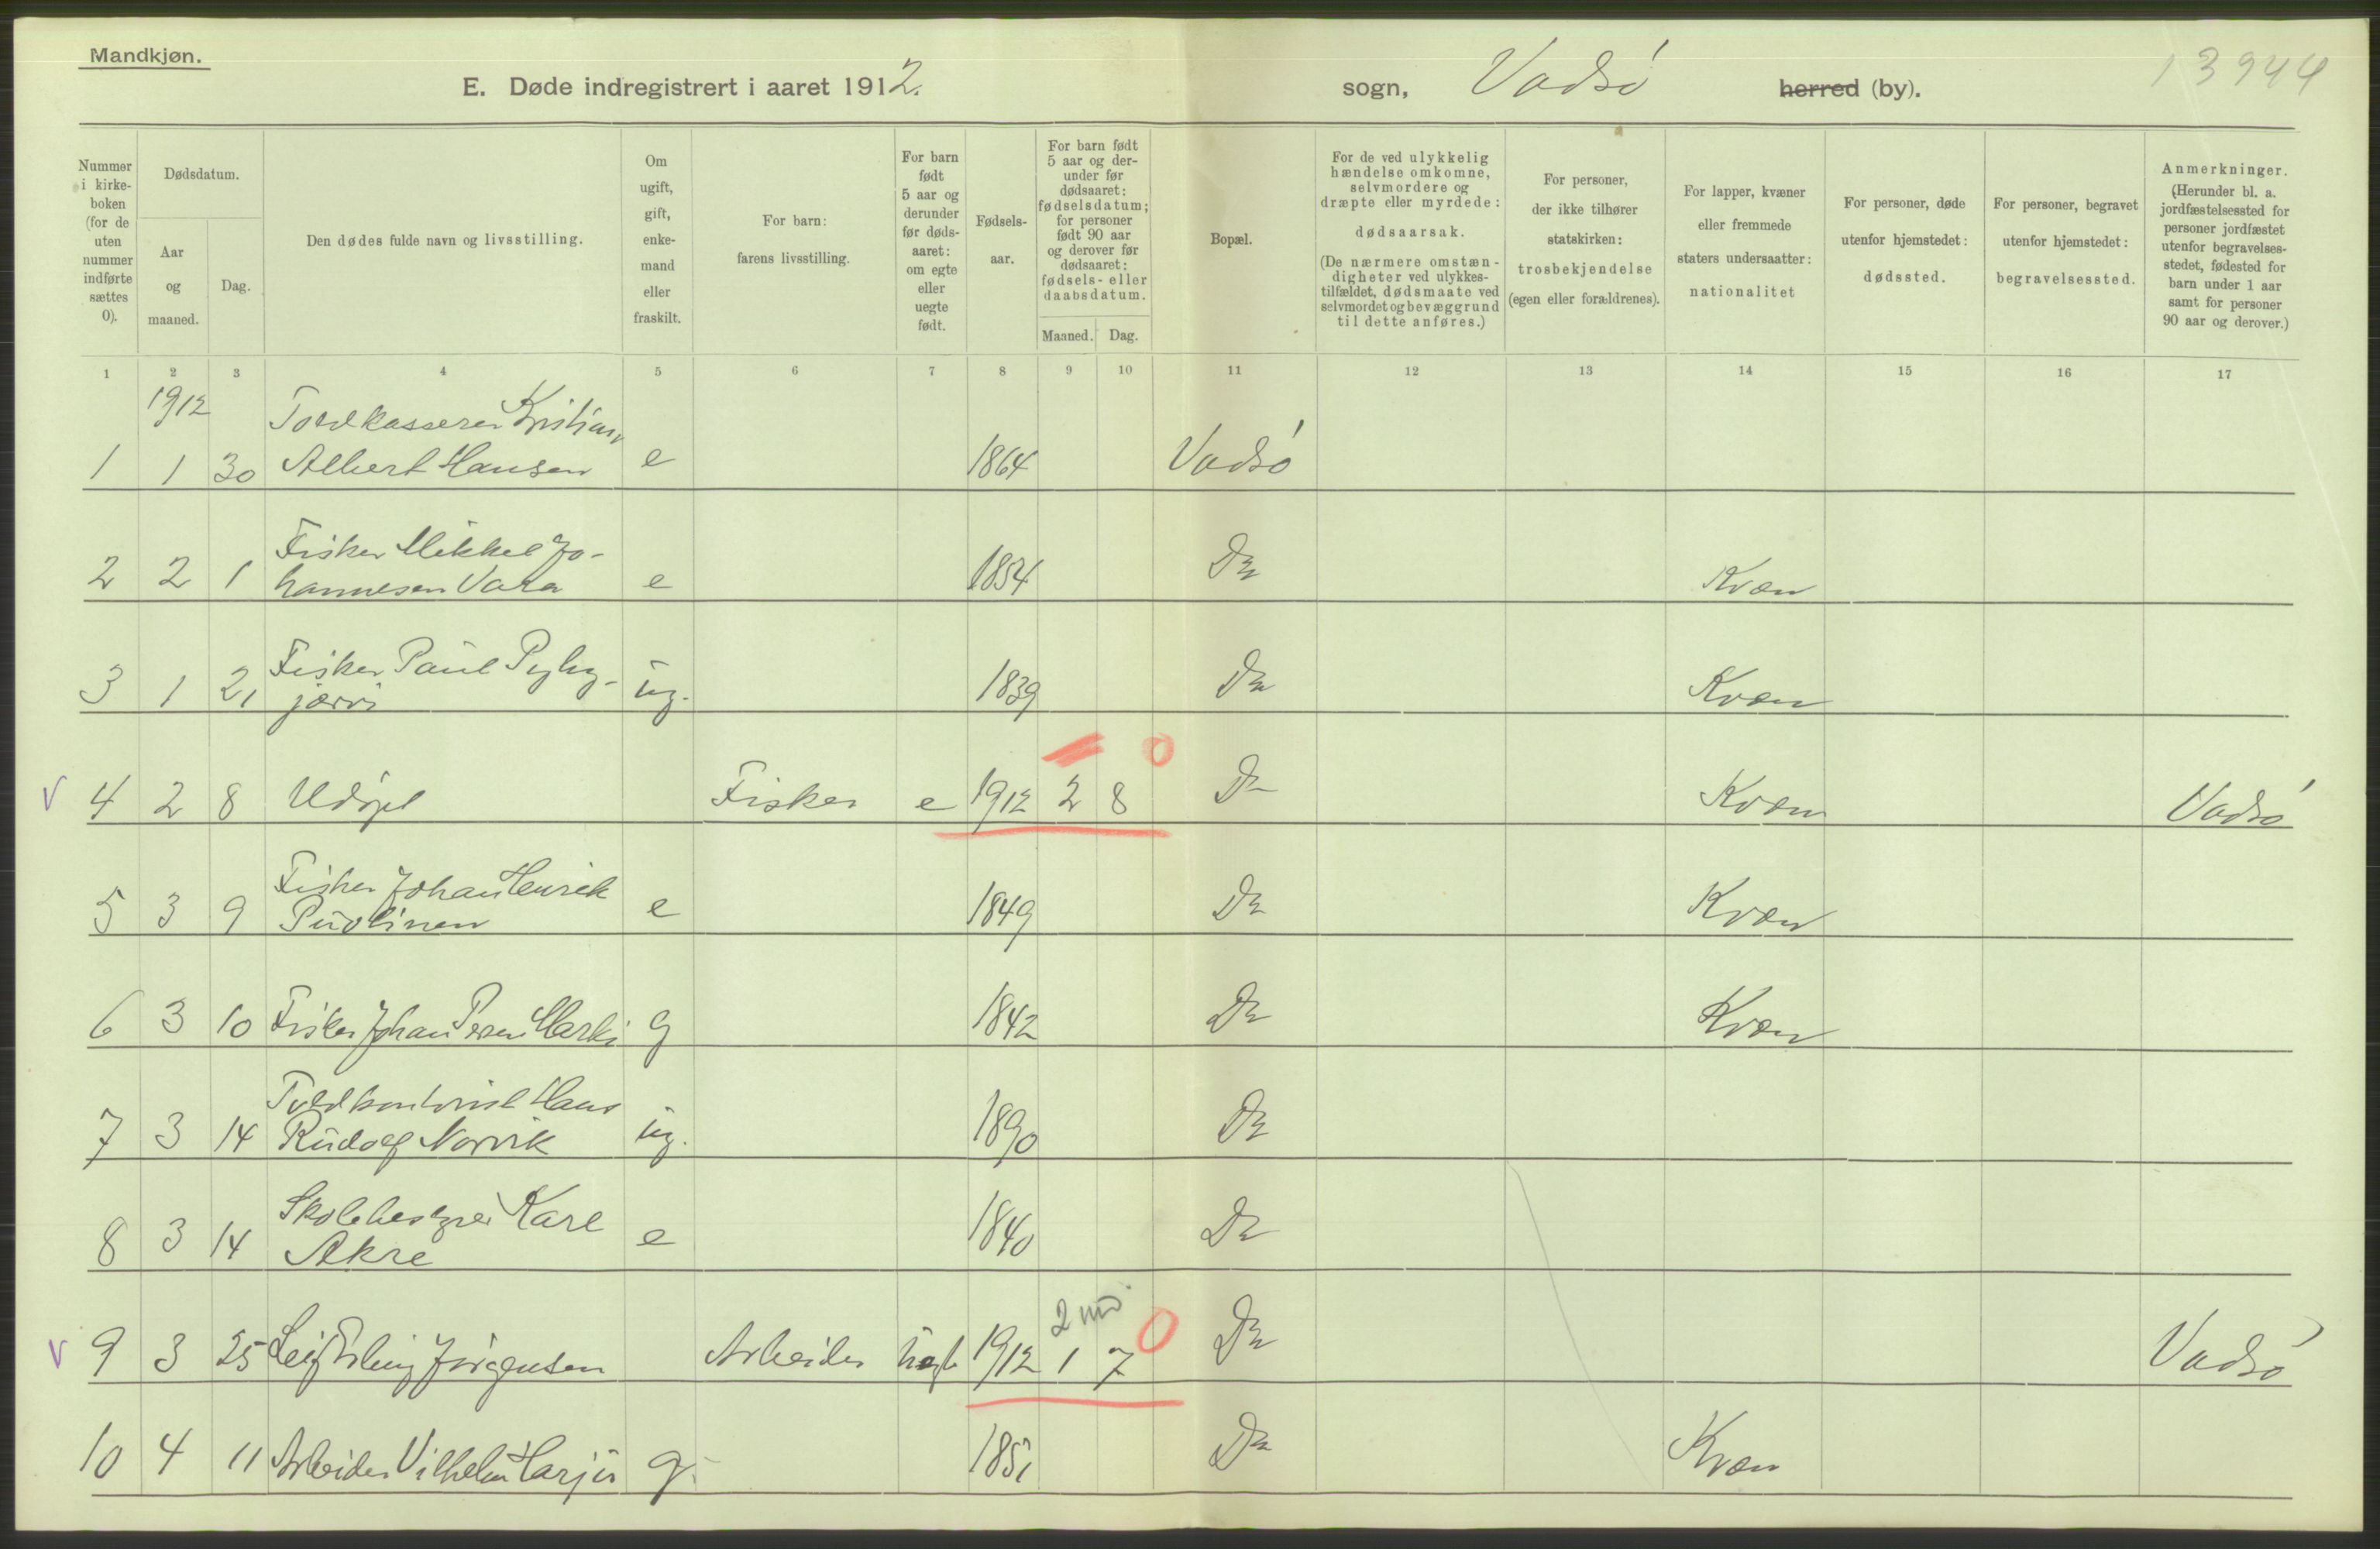 Mandkjøn.
E. Døde indregistrert i aaret 1912.
sogn, Vadsø herred (by).
13944
Nummer i kirke-boken (for de uten nummer indførte sættes 0).
Dødsdatum.
Aar og maaned.
Dag.
Den dødes fulde navn og livsstilling.
Om ugift, gift, enke-mand eller fraskilt.
For barn: farens livsstilling.
For barn født 5 aar og derunder før døds-aaret: om egte eller uegte født.
Fødsels-aar.
For barn født 5 aar og der-under før dødsaaret: fødselsdatum; for personer født 90 aar og derover før dødsaaret: fødsels- eller daabsdatum.
Maaned.
Dag.
Bopæl.
For de ved ulykkelig hændelse omkomne, selvmordere og dræpte eller myrdede: dødsaarsak. (De nærmere omstæn-digheter ved ulykkes-tilfældet, dødsmaate ved selvmordet og bevæggrund til dette anføres.)
For personer, der ikke tilhører statskirken: trosbekjendelse (egen eller forældrenes).
For lapper, kvæner eller fremmede staters undersaatter: nationalitet
For personer, døde utenfor hjemstedet: dødssted.
For personer, begravet utenfor hjemstedet: begravelsessted.
Anmerkninger. (Herunder bl. a. jordfæstelsessted for personer jordfæstet utenfor begravelses-stedet, fødested for barn under 1 aar samt for personer 90 aar og derover.)
1 2 3 4 5 6 7 8 9 10 11 12 13 14 15 16 17
1912 Toldkasserer Kristian
1 1 30 Albert Hansen e 1864 Vadsø
Fisker Mikkel Jo-
2 2 1 hannesen Vara e 1854 Do Kvæn
Fisker Paul Pyhy-
3 1 21 jærvi ug. 1839 Do Kvæn
0
V 4 2 8 Udøpt Fisker e 1912 2 8 Do Kvæn Vadsø
Fisker Johan Henrik
5 3 9 Puolinen e 1849 Do Kvæn
6 3 10 Fisker Johan Persen Marki g 1842 Do Kvæn
Toldkontorist Hans
7 3 14 Rudolf Norvik ug. 1890 Do
Skolebestyrer Karl
8 3 14 Akre e 1840 Do
2 md. 0
V 9 3 25 Leif Erling Jørgensen Arbeider uegte 1912 1 7 Do Vadsø
10 4 11 Arbeider Vilhelm Harju g. 1851 Do Kvæn